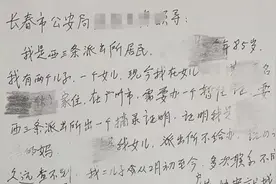 长春市公安局 导:
我是西三条派出所居民。 年85岁
我有两个儿子,一个女儿,现今我在女儿 名
家住,在广州市,需要办一个暂住证,要
西三条派出所出一个摘录证明,证明我是
的妈 我女儿,派出所不给办,说
久远查不到,我二儿子从2月初至今,多次联系不